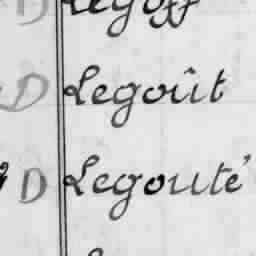 D Legoff
D Legoût
D Legouté